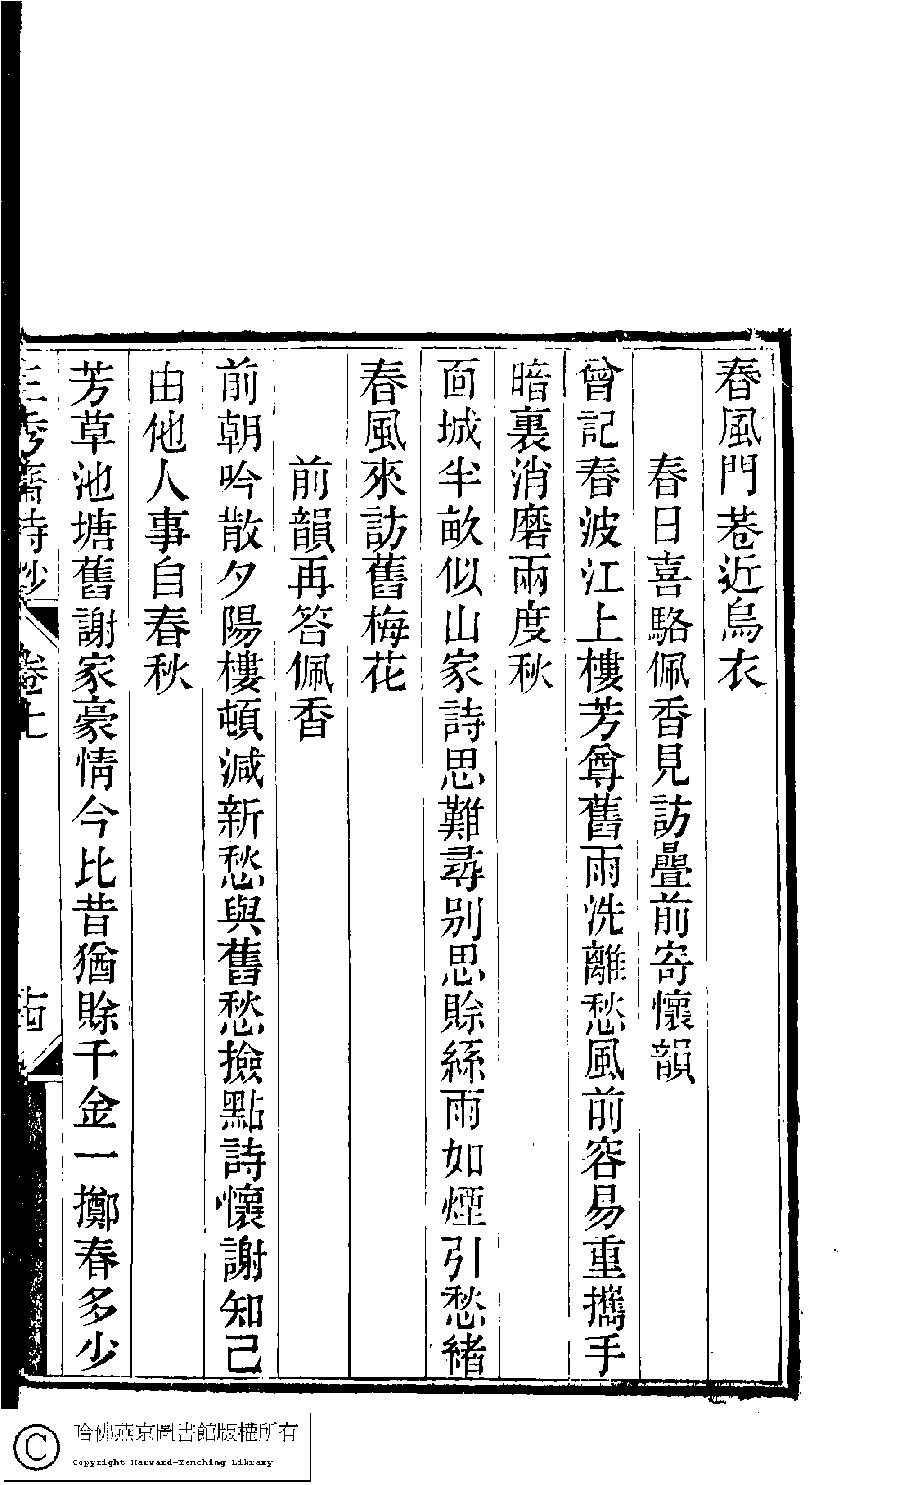 春風門巷近烏衣
春日喜駱佩香見訪疊前寄懷韻
曾記春波江上樓芳尊舊雨洗離愁風前容易重攜手
暗裏消磨兩度秋
面城半畝似山家詩思難尋別思賒絲雨如煙引愁緒
春風來訪舊梅花
前韻再答佩香
前朝吟散夕陽樓頓減新愁與舊愁撿點詩懷謝知己
由他人事自春秋
芳草池塘舊謝家豪情今比昔猶賒千金一擲春多少
三秀齋詩鈔
卷上
十四
哈佛燕京圖書館版權所有
Copyright Harvard-Yenching Library